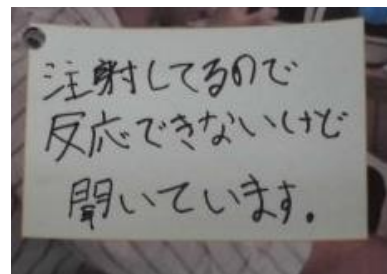 注射してるので
反応できないけど
聞いています.